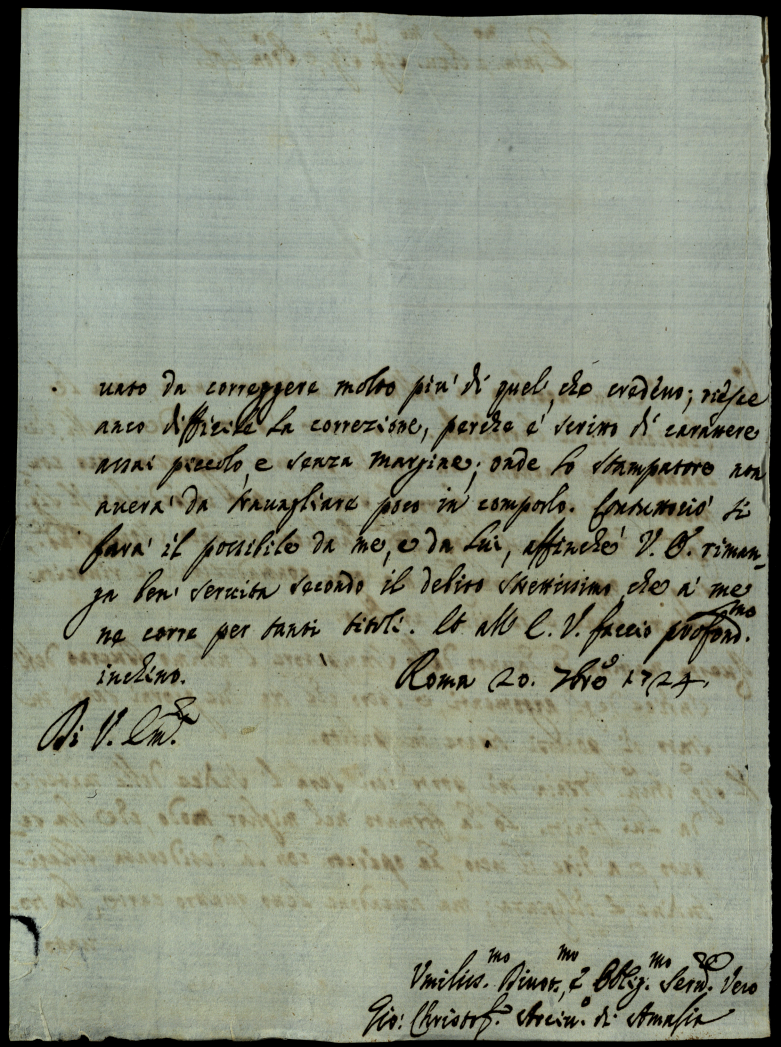 uato da correggere molto piu' di quel, che credeuo; riesce
anco difficile la correzione, perche e' scritto di carattere
assai piccolo, e senza margine; onde lo stampatore non
auera' da trauagliare poco in comporlo. Contuttocio' si
fara' il possibile da me, e da lui, affinche' V. E. riman-
ga ben' seruita secondo il debito strettissimo, che a' me
ne corre per tanti titoli. Et all' E. V. faccio profond.mo
inchino.
Roma 20. 7bre 1724.
Di V. Em.
Vmilis.mo Diuot.mo, e Obblig.mo Seru. Vero
Gio: Christof. Arciu.o di Amasia